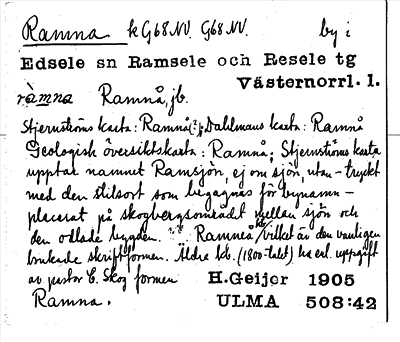 Ramna k G68NV. G68 NV. by i
Edsele sn Ramsele och Resele tg
Västernorrl. l.
ràmna Ramnå, jb.
Stjernströms karta: Ramnå; Dahlmans karta: Ramnå
Geologisk översiktskarta: Ramnå; Stjernströms karta
upptar namnet Ramsjön, ej om sjön, utan – tryckt
med den stilsort som begagnas för bynamn –
placerat på skogbergsområdet mellan sjön och
den odlade bygden. Ramneå vilket är den vanligen
brukade skriftformen. Äldre kb. (1800-talet) ha enl. uppgift
av pastor E. Skog formen H.Geijer 1905
Ramna. ULMA 508:42